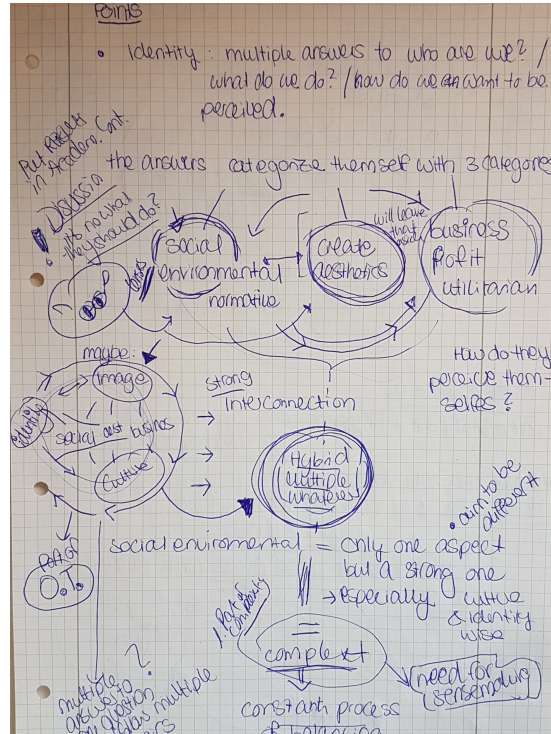 POINTS
• Identity : multiple answers to who are we? /
what do we do? / how do we want to be
perceived.
Put Results
in Academ. Cont.
the answers categorize themself with 3 categories
! Discussion
to now what
they should do?
social
environmental
normative
create
aesthetics
will leave
that
business
Profit
utilitarian
?
maybe:
image
identity
social aest busines
culture
strong
interconnection
How do they
perceive them-
selfes?
Hybrid
multiple
whatever
• aim to be
different
Part of
O.T.
social enviromental = only one aspect
but a strong one
→ especially culture
& identity
wise
Part of
Complexity
=
complext
need for
sensemaking
?
multiple
answers to
question
multiple
constant process
of balancing